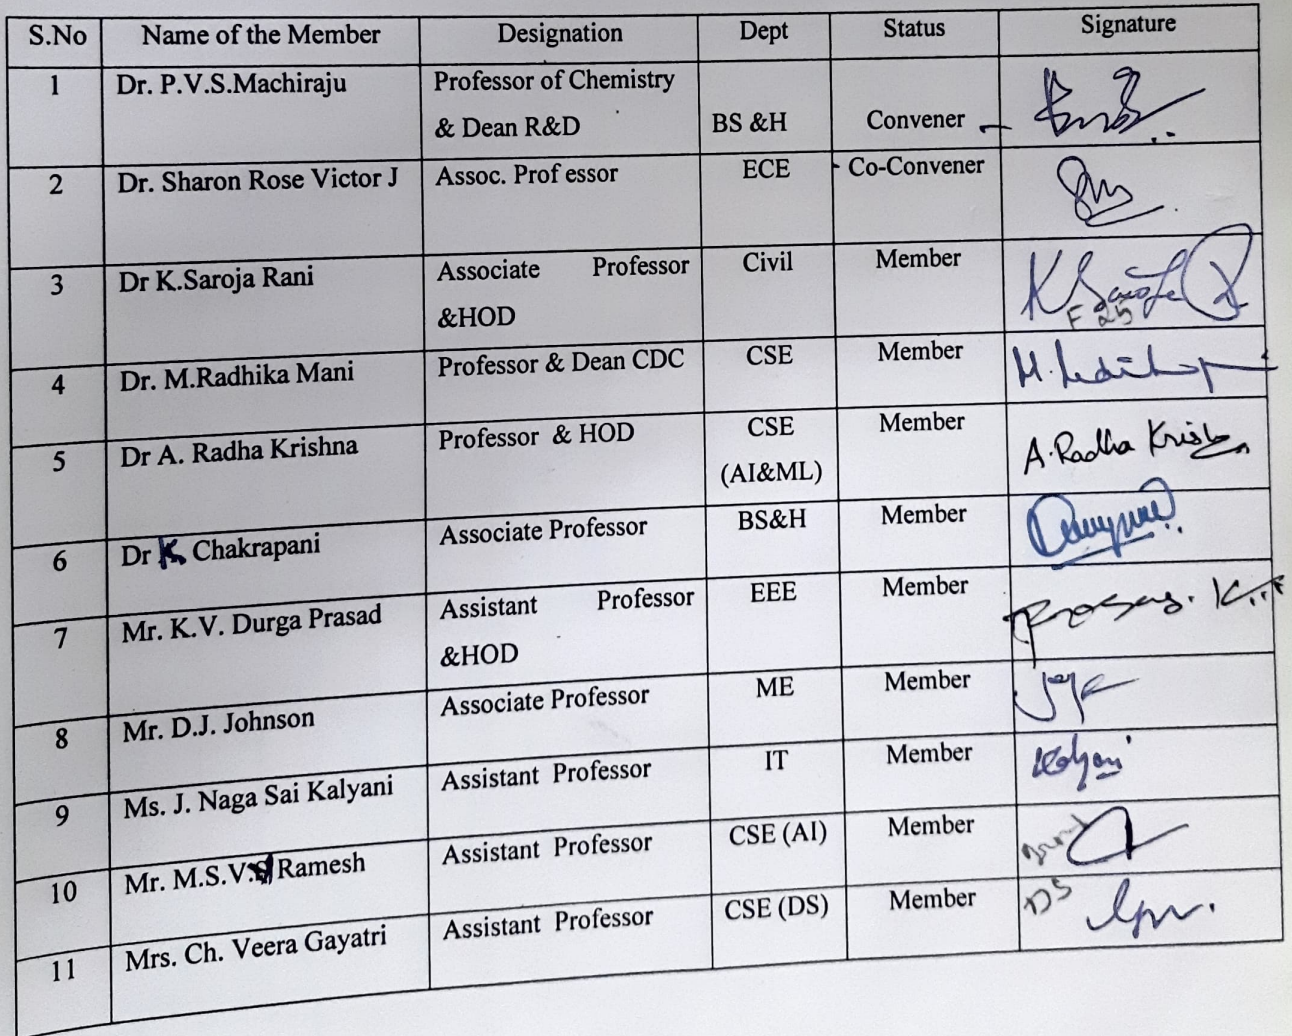 S.No Name of the Member Designation Dept Status Signature
1 Dr. P.V.S.Machiraju Professor of Chemistry
& Dean R&D BS &H Convener
2 Dr. Sharon Rose Victor J Assoc. Prof essor ECE Co-Convener
3 Dr K.Saroja Rani Associate Professor Civil Member
&HOD
4 Dr. M.Radhika Mani Professor & Dean CDC CSE Member
5 Dr A. Radha Krishna Professor & HOD CSE Member A.Radha Krishna
(AI&ML)
6 Dr K Chakrapani Associate Professor BS&H Member
7 Mr. K.V. Durga Prasad Assistant Professor EEE Member
&HOD
8 Mr. D.J. Johnson Associate Professor ME Member
9 Ms. J. Naga Sai Kalyani Assistant Professor IT Member Kalyani
10 Mr. M.S.V. Ramesh Assistant Professor CSE (AI) Member
11 Mrs. Ch. Veera Gayatri Assistant Professor CSE (DS) Member DS